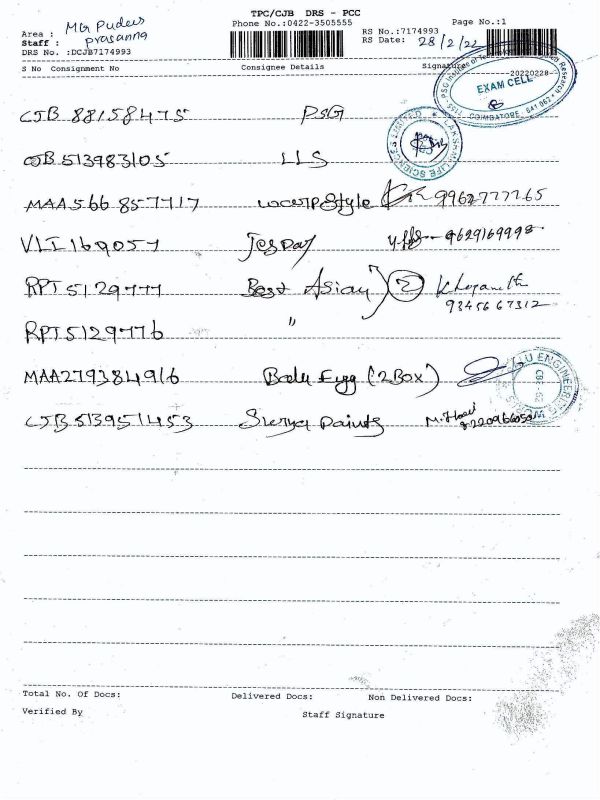 TPC/CJB DRS - PCC
Phone No.:0422-3505555
Page No.:1
Area : MG Pudur
Staff : prasanna
DRS No. :DCJB7174993
RS No.:7174993
RS Date: 28/2/22
S No Consignment No Consignee Details Signature
20220228
EXAM CELL
COIMBATORE
CJB 88158475 PSG
CJB 513983105 LLS
LAKSHMI LIFE SCIENCES LIMITED
MAA 566 857717 9962777765
VLI 169057 Jespay 9629169998
RPT 5129777 Best Asian 2
9345667312
RPT 5129776 "
MAA279384916 (2Box)
ENGINEERING
CJB 513951453 Surya Paints
Total No. Of Docs: Delivered Docs: Non Delivered Docs:
Verified By Staff Signature